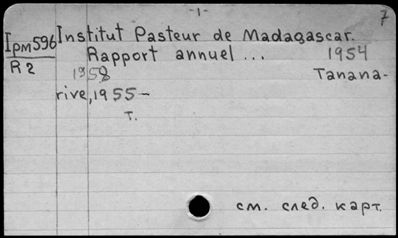 -1-
7
Ipm596
R2
Institut Pasteur de Madagascar.
Rapport annuel ... 1954
1958 Tanana-
rive, 1955-
т.
см. след. карт.